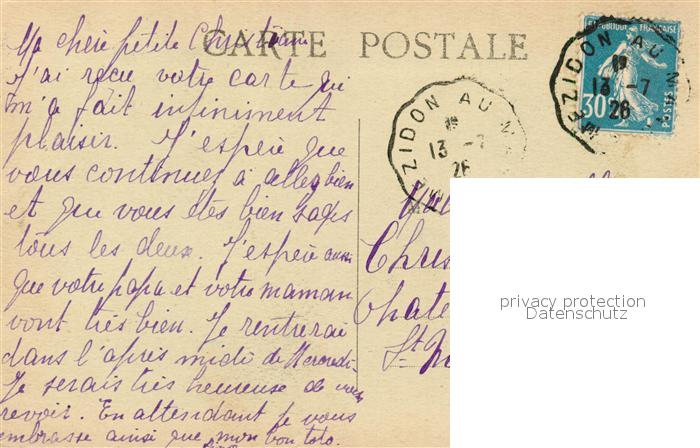 CARTE POSTALE
Ma chère petite Christiane
J'ai reçu votre carte qui
m'a fait infiniment
plaisir. J'espère que
vous continuez à aller bien
et que vous êtes bien sages
tous les deux. J'espère aussi
que votre papa et votre maman
vont très bien. Je rentrerai
dans l'après midi de Mercredi.
Je serais très heureuse de vous
revoir. En attendant je vous
embrasse ainsi que mon bon toto.
RÉPUBLIQUE FRANÇAISE
30
POSTES
MEZIDON AU M
13 -7
26
MEZIDON AU M
13 -7
26
Chris
Chate
St
privacy protection
Datenschutz